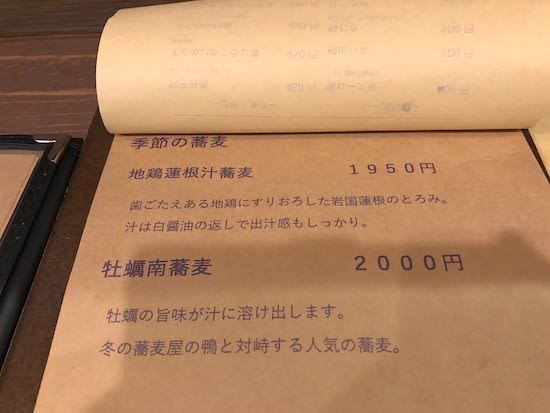 季節の蕎麦
地鶏蓮根汁蕎麦 1950円
歯ごたえある地鶏にすりおろした岩国蓮根のとろみ。
汁は白醤油の返しで出汁感もしっかり。
牡蠣南蕎麦 2000円
牡蠣の旨味が汁に溶け出します。
冬の蕎麦屋の鴨と対峙する人気の蕎麦。